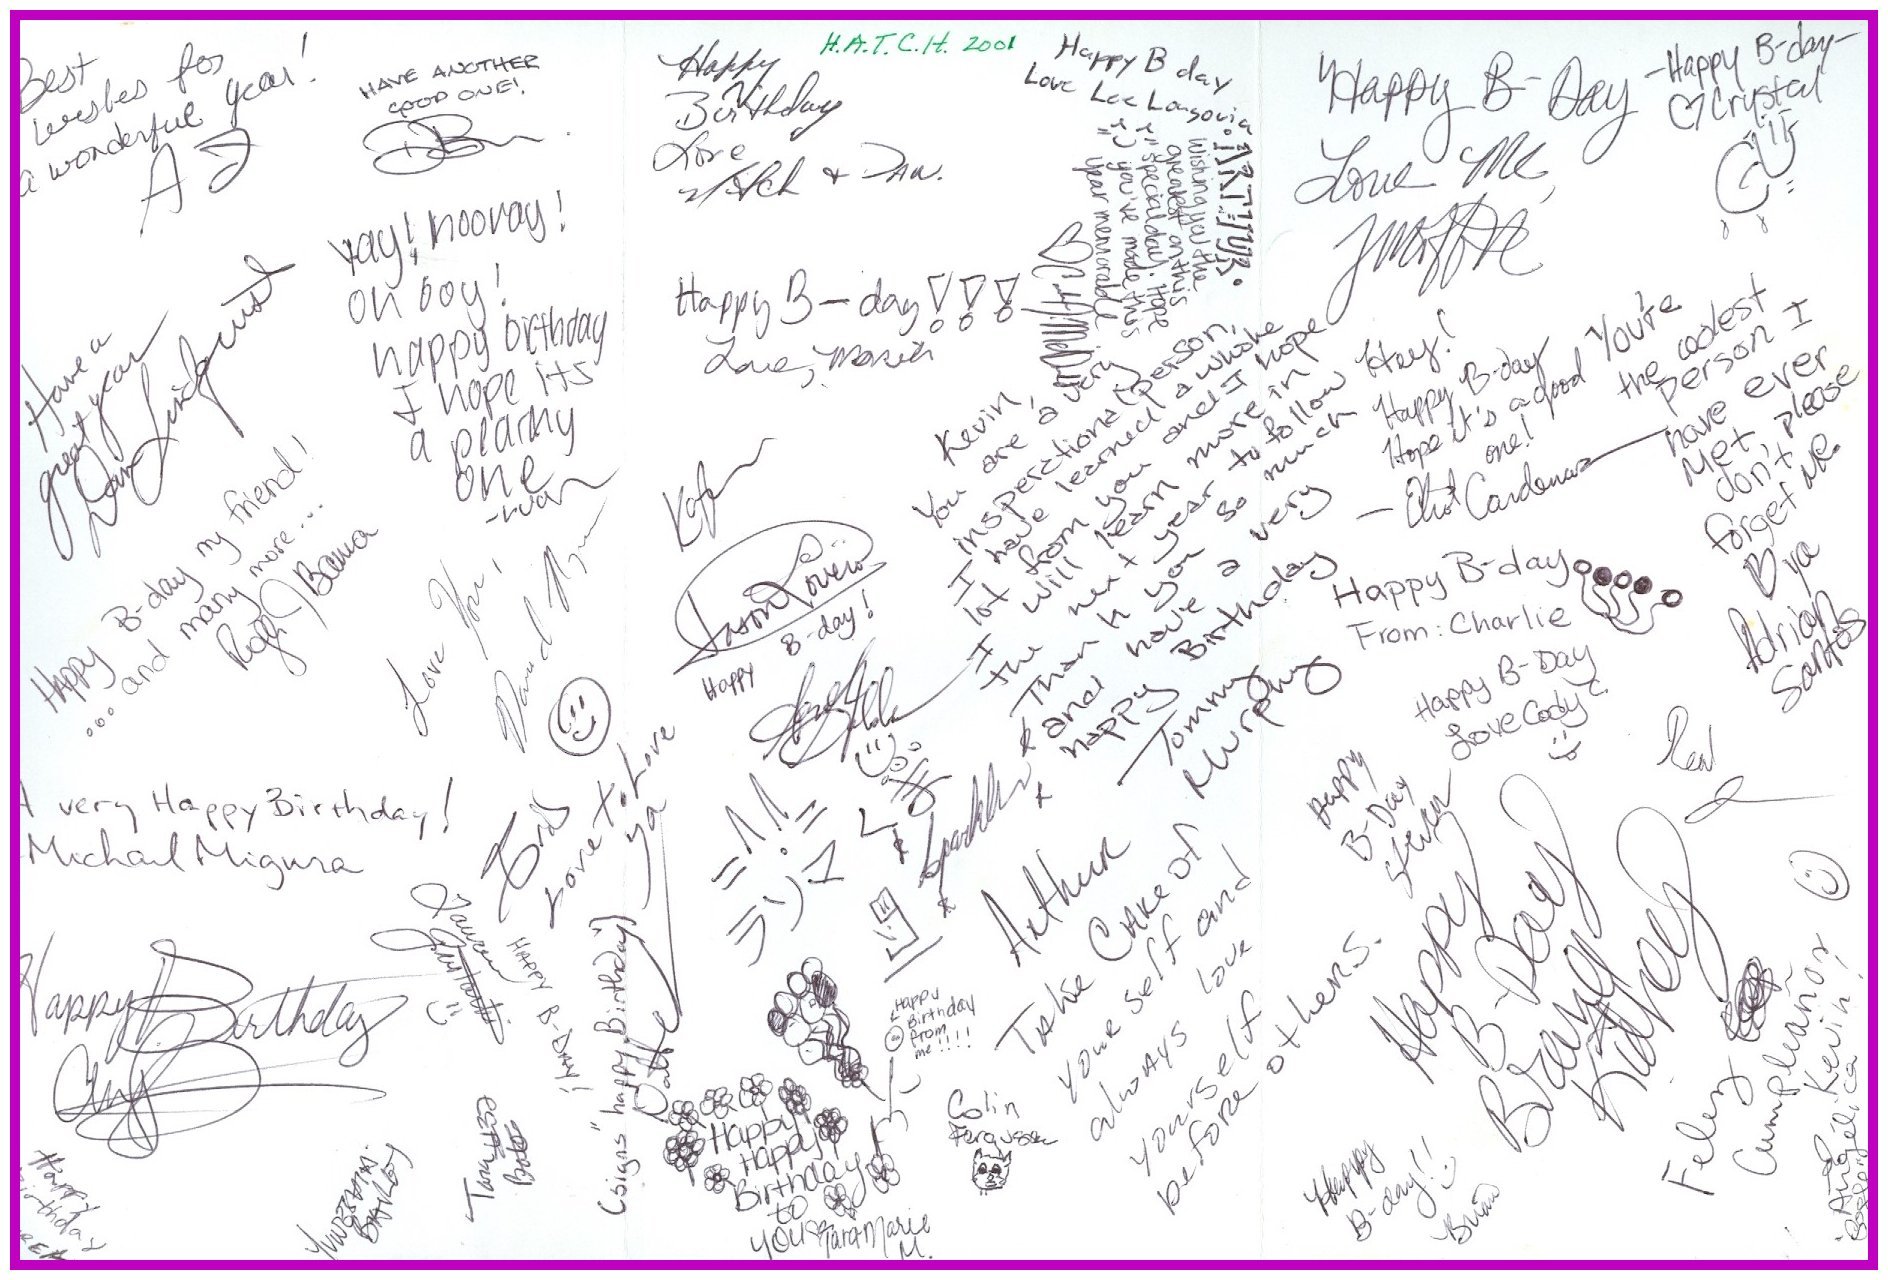 H.A.T.C.H. 2001
Best
wishes for
a wonderful year!
AJ
HAVE ANOTHER
GOOD ONE!
Yay! hooray!
oh boy!
happy birthday
I hope its
a peachy
one
Have a
great year
Happy B-day my friend!
...and many more...
Love You,
David
A very Happy Birthday!
Michael Migura
Happy Birthday
Love to Love
ya
Happy B-Day!
(signs "happy Birthday")
Happy
Birthday
Happy
Birthday
Love
Mitch & Dan.
Happy B-day!!!
Love,
Happy B day
Love Lee Longoria
ARTHUR.
Wishing you the
greatest on this
special day. Hope
you've made this
year memorable
Jason
Happy B-day!
Kevin,
You are a very
inspirational person,
I have learned a whole
lot from you and I hope
I will learn more in
the next year to follow
Thank you so much
and have a very
happy Birthday
Tommy
Murphy
Sparkles
Arthur
Take Care of
your self and
always love
yourself
before others.
Happy
Birthday
from
me!!!!
Colin
Ferguson
Happy
Happy
Birthday
to
you
TaraMarie
M.
"Happy B-Day
Love Me,
-Happy B-day-
Crystal
Hey!
Happy B-day
Hope it's a good
one!
Cardenas
You're
the coolest
person I
have ever
Met
don't please
forget me.
B ya
Adrian
Santos
Happy B-day
From: Charlie
Happy B-Day
Love Cody
Happy
B-Day
Steven
Happy
B-Day
Feliz
Cumpleaños
Kevin!
Angelica
Happy
B-day!!
Brian